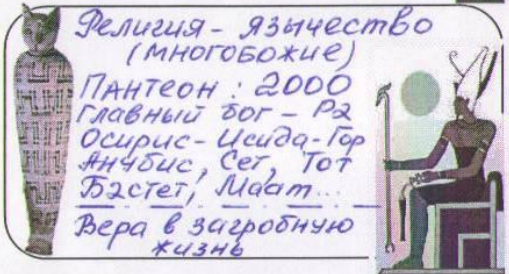 Религия - язычество
(многобожие)
Пантеон: 2000
Главный бог - Рэ
Осирис - Исида - Гор
Анубис, Сет, Тот
Бэстет, Маат...
Вера в загробную
жизнь